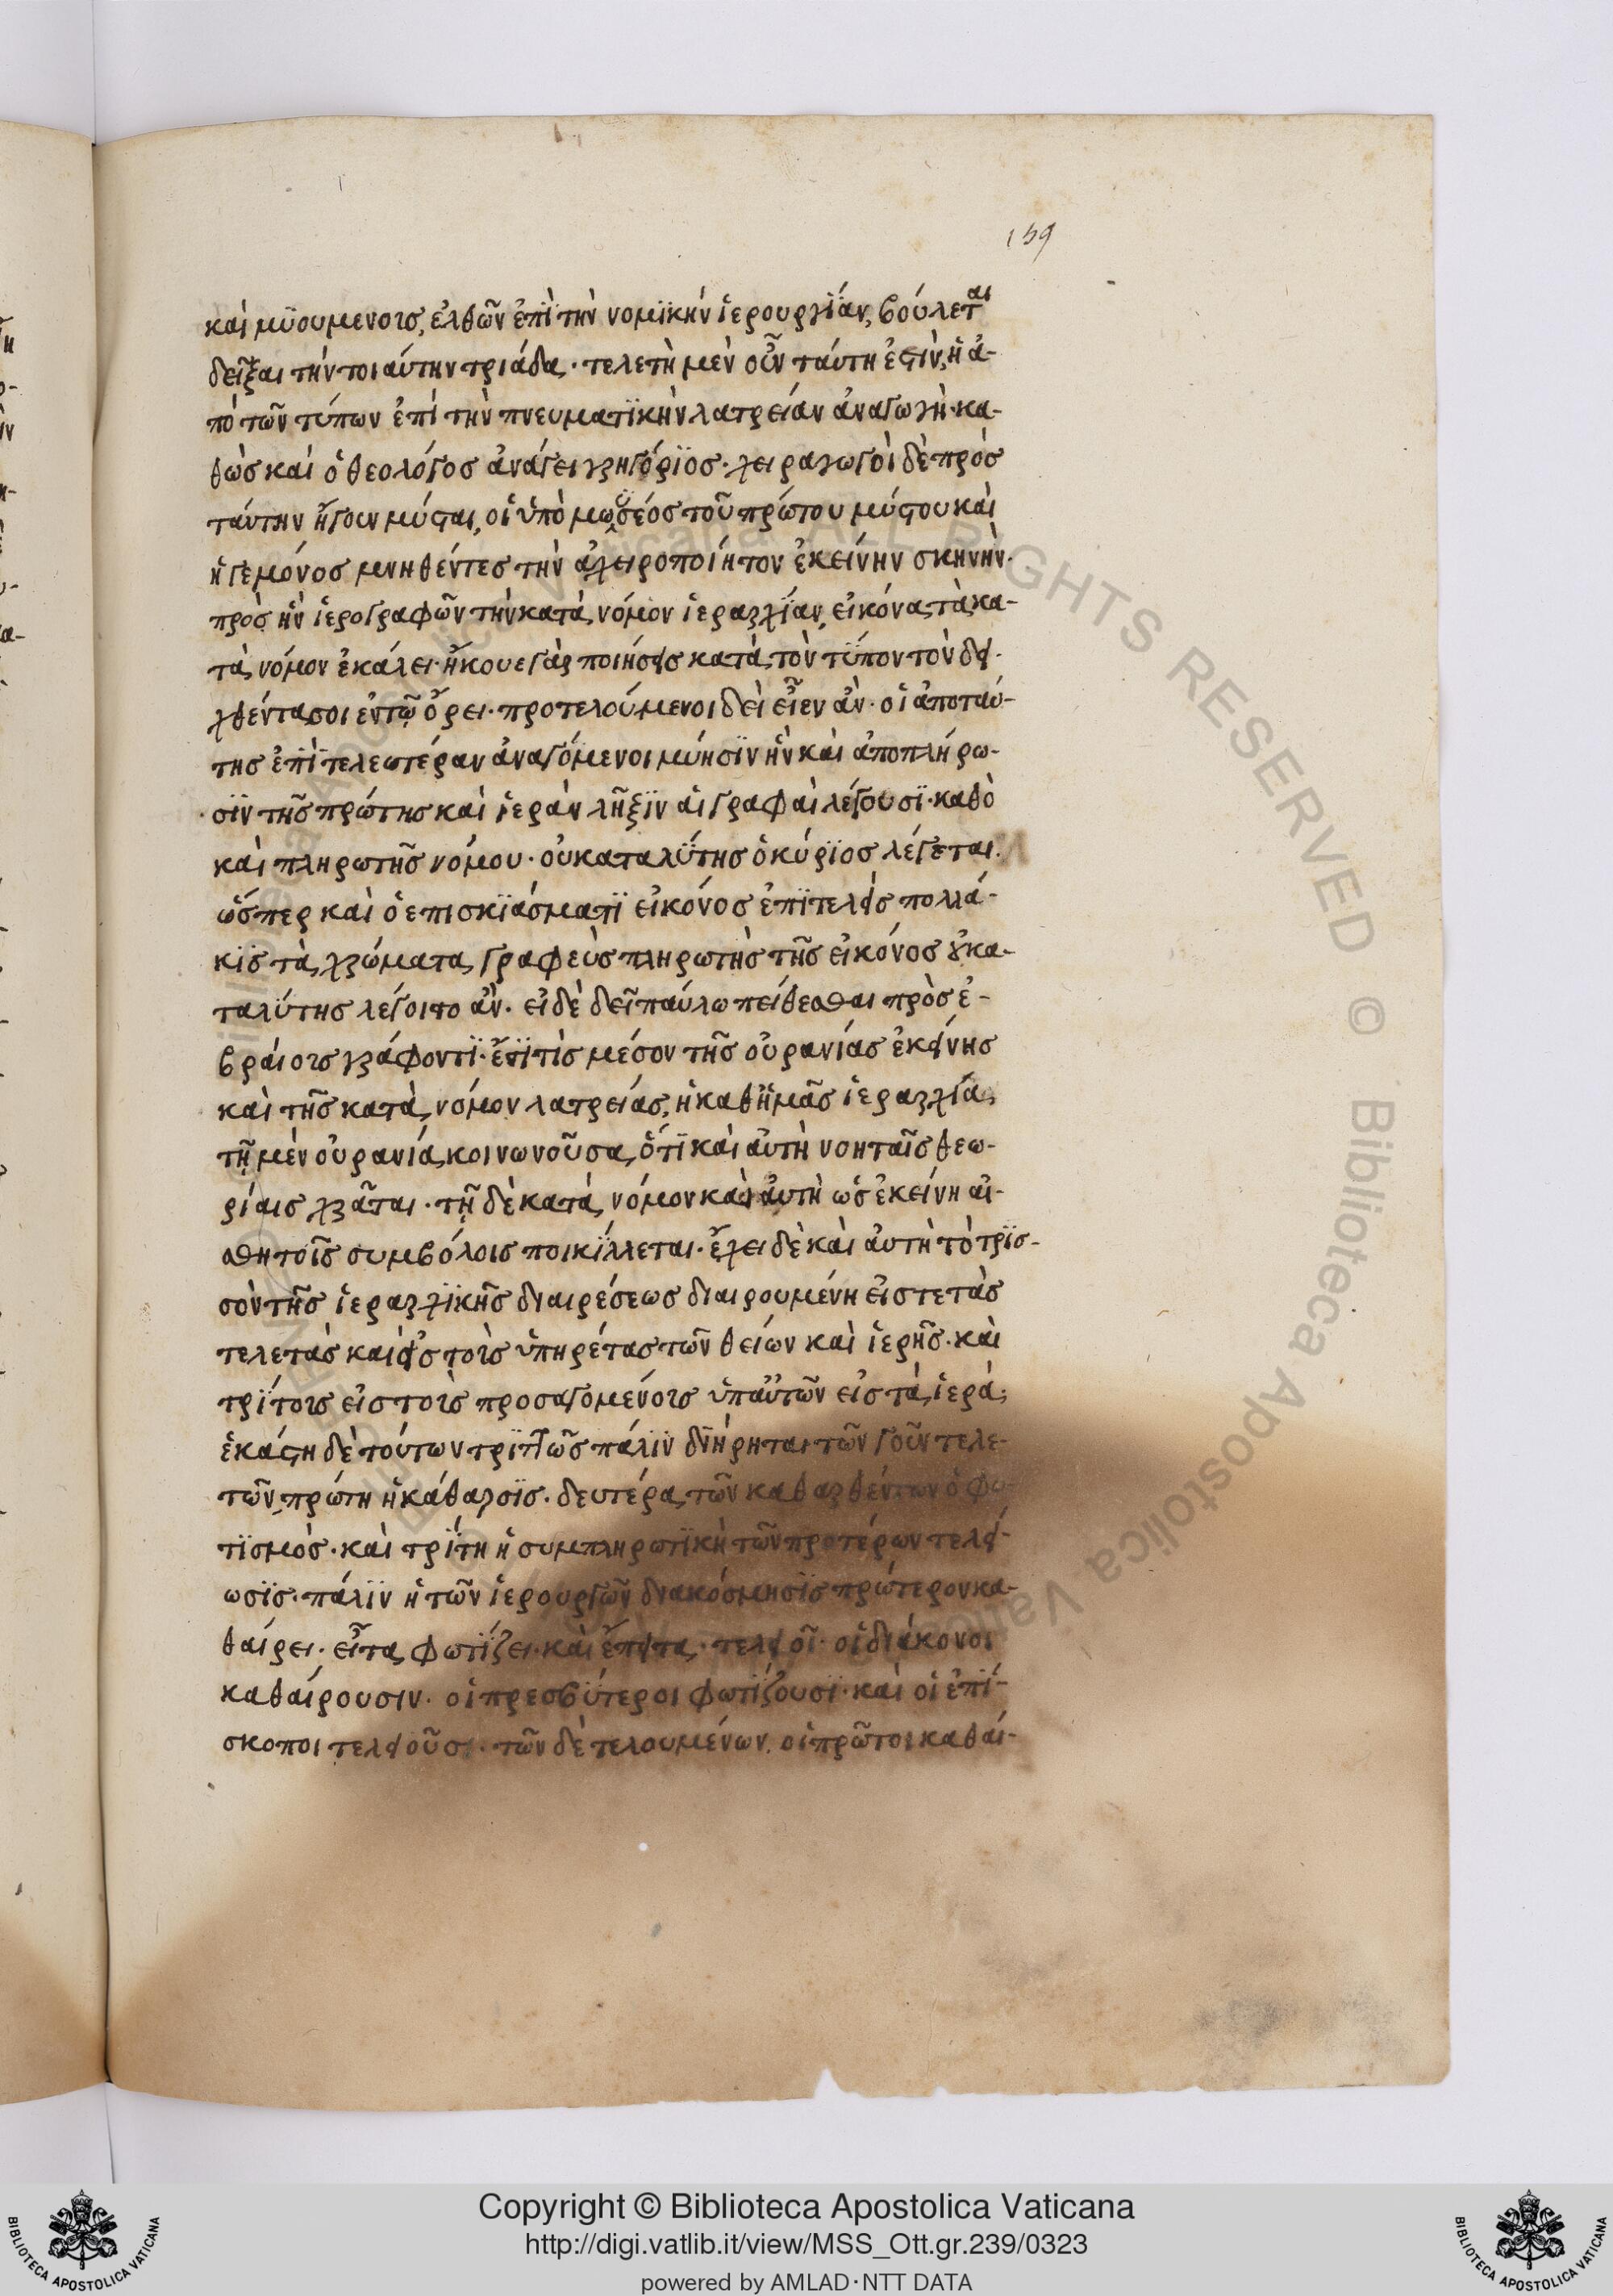 159
καὶ μϋουμενοις, ἐλθῶν ἐπῒ τὴν νομϊκήν ἱερουργΐαν, βούλεται
δεῖξαι τήν τοιαύτην τριάδα· τελετὴ μὲν οὖν ταύτη ἐστὶν, ἡ ἀ-
πὸ τῶν τύπων ἐπί τὴν πνευματϊκὴν λατρείαν ἀναγωγὴ· κα-
θὼς καί ὁ θεολόγος ἀνάγει γρηγόρϊος· χειραγωγοὶ δὲ πρὸς
ταύτην ἤγουν μύσται, οἱ ὑπὸ μωσέος τοῦ πρώτου μύστου καὶ
ἡγεμόνος μυηθέντες τὴν ἀχειροποίητον ἐκείνην σκηνὴν·
πρὸς ἣν ἱερογραφῶν τὴν κατὰ νόμον ἱεραρχΐαν, εἰκόνα τὰ κα-
τὰ νόμον ἐκάλει· ἤκουε γὰρ ποιήσεις κατὰ τὸν τΰπον τὸν δει-
χθέντα σοι ἐν τῷ ὄρει· προτελούμενοι δεὶ εἶεν ἂν· οἱ ἀπο ταύ-
της ἐπῒ τελεωτέραν ἀναγόμενοι μύησϊν ἣν καὶ ἀποπλήρω-
σϊν τῆς πρώτης καὶ ἱερὰν λῆξϊν αἱ γραφαὶ λέγουσϊ· καθὸ
καὶ πληρωτῆς νόμου· οὐ καταλΰτης ὁ κύρϊος λέγεται.
ὥσπερ καὶ ὁ επισκϊάσματϊ εἰκόνος ἐπϊτελεὶς πολλά-
κϊς τὰ χρώματα γραφεὺς πληρωτὴς τῆς εἰκόνος οὐ κα-
ταλΰτης λέγοιτο ἂν· εἰ δὲ δεῖ παύλω πείθεσθαι πρὸς ἑ-
βραίοις γράφοντϊ· ἔστϊ τὶς μέσον τῆς οὐρανίας ἐκείνης
καὶ τῆς κατὰ νόμον λατρείας, ἡ καθἡμᾶς ἱεραρχία
τῇ μὲν οὐρανία κοινωνοῦσα, ὅτϊ καὶ αὐτὴ νοηταῖς θεω-
ρίαις χρᾶται· τῇ δὲ κατὰ νόμον καὶ αὐτὴ ὡς ἐκείνη αἰ-
σθητοῖς συμβόλοις ποικΐλλεται· ἔχει δὲ καὶ αὐτὴ τὸ τρϊσ-
σὸν τῆς ἱεραρχϊκῆς διαιρέσεως διαιρουμένη εἰς τε τὰς
τελετὰς καὶ εἰς τοὶς ὑπηρέτας τῶν θείων καὶ ἱερῆς· καὶ
τρΐτοις εἰς τοὶς προσαγομένοις ὑπαὐτῶν εἰς τὰ ἱερὰ;
ἑκάστη δὲ τούτων τρϊττῶς πάλϊν διήρηται· τῶν γοῦν τελε-
τῶν, πρώτη ἡ κάθαρσϊς· δευτέρα, τῶν καθαρθέντων ὁ φω-
τϊσμὸς· καὶ τρΐτη ἡ συμπληρωτϊκὴ τῶν προτέρων τελεί-
ωσϊς· πάλϊν ἡ τῶν ἱερουργῶν διακόσμησϊς πρώτερον κα-
θαίρει· εἶτα φωτΐζει· καὶ ἔπειτα· τελειοῖ· οἱ διάκονοι
καθαίρουσιν· οἱ πρεσβΰτεροι φωτΐζουσϊ· καὶ οἱ ἐπΐ-
σκοποι τελειοῦσι· τῶν δὲ τελουμένων. οἱ πρῶτοι καθαί-
Copyright © Biblioteca Apostolica Vaticana
http://digi.vatlib.it/view/MSS_Ott.gr.239/0323
powered by AMLAD·NTT DATA